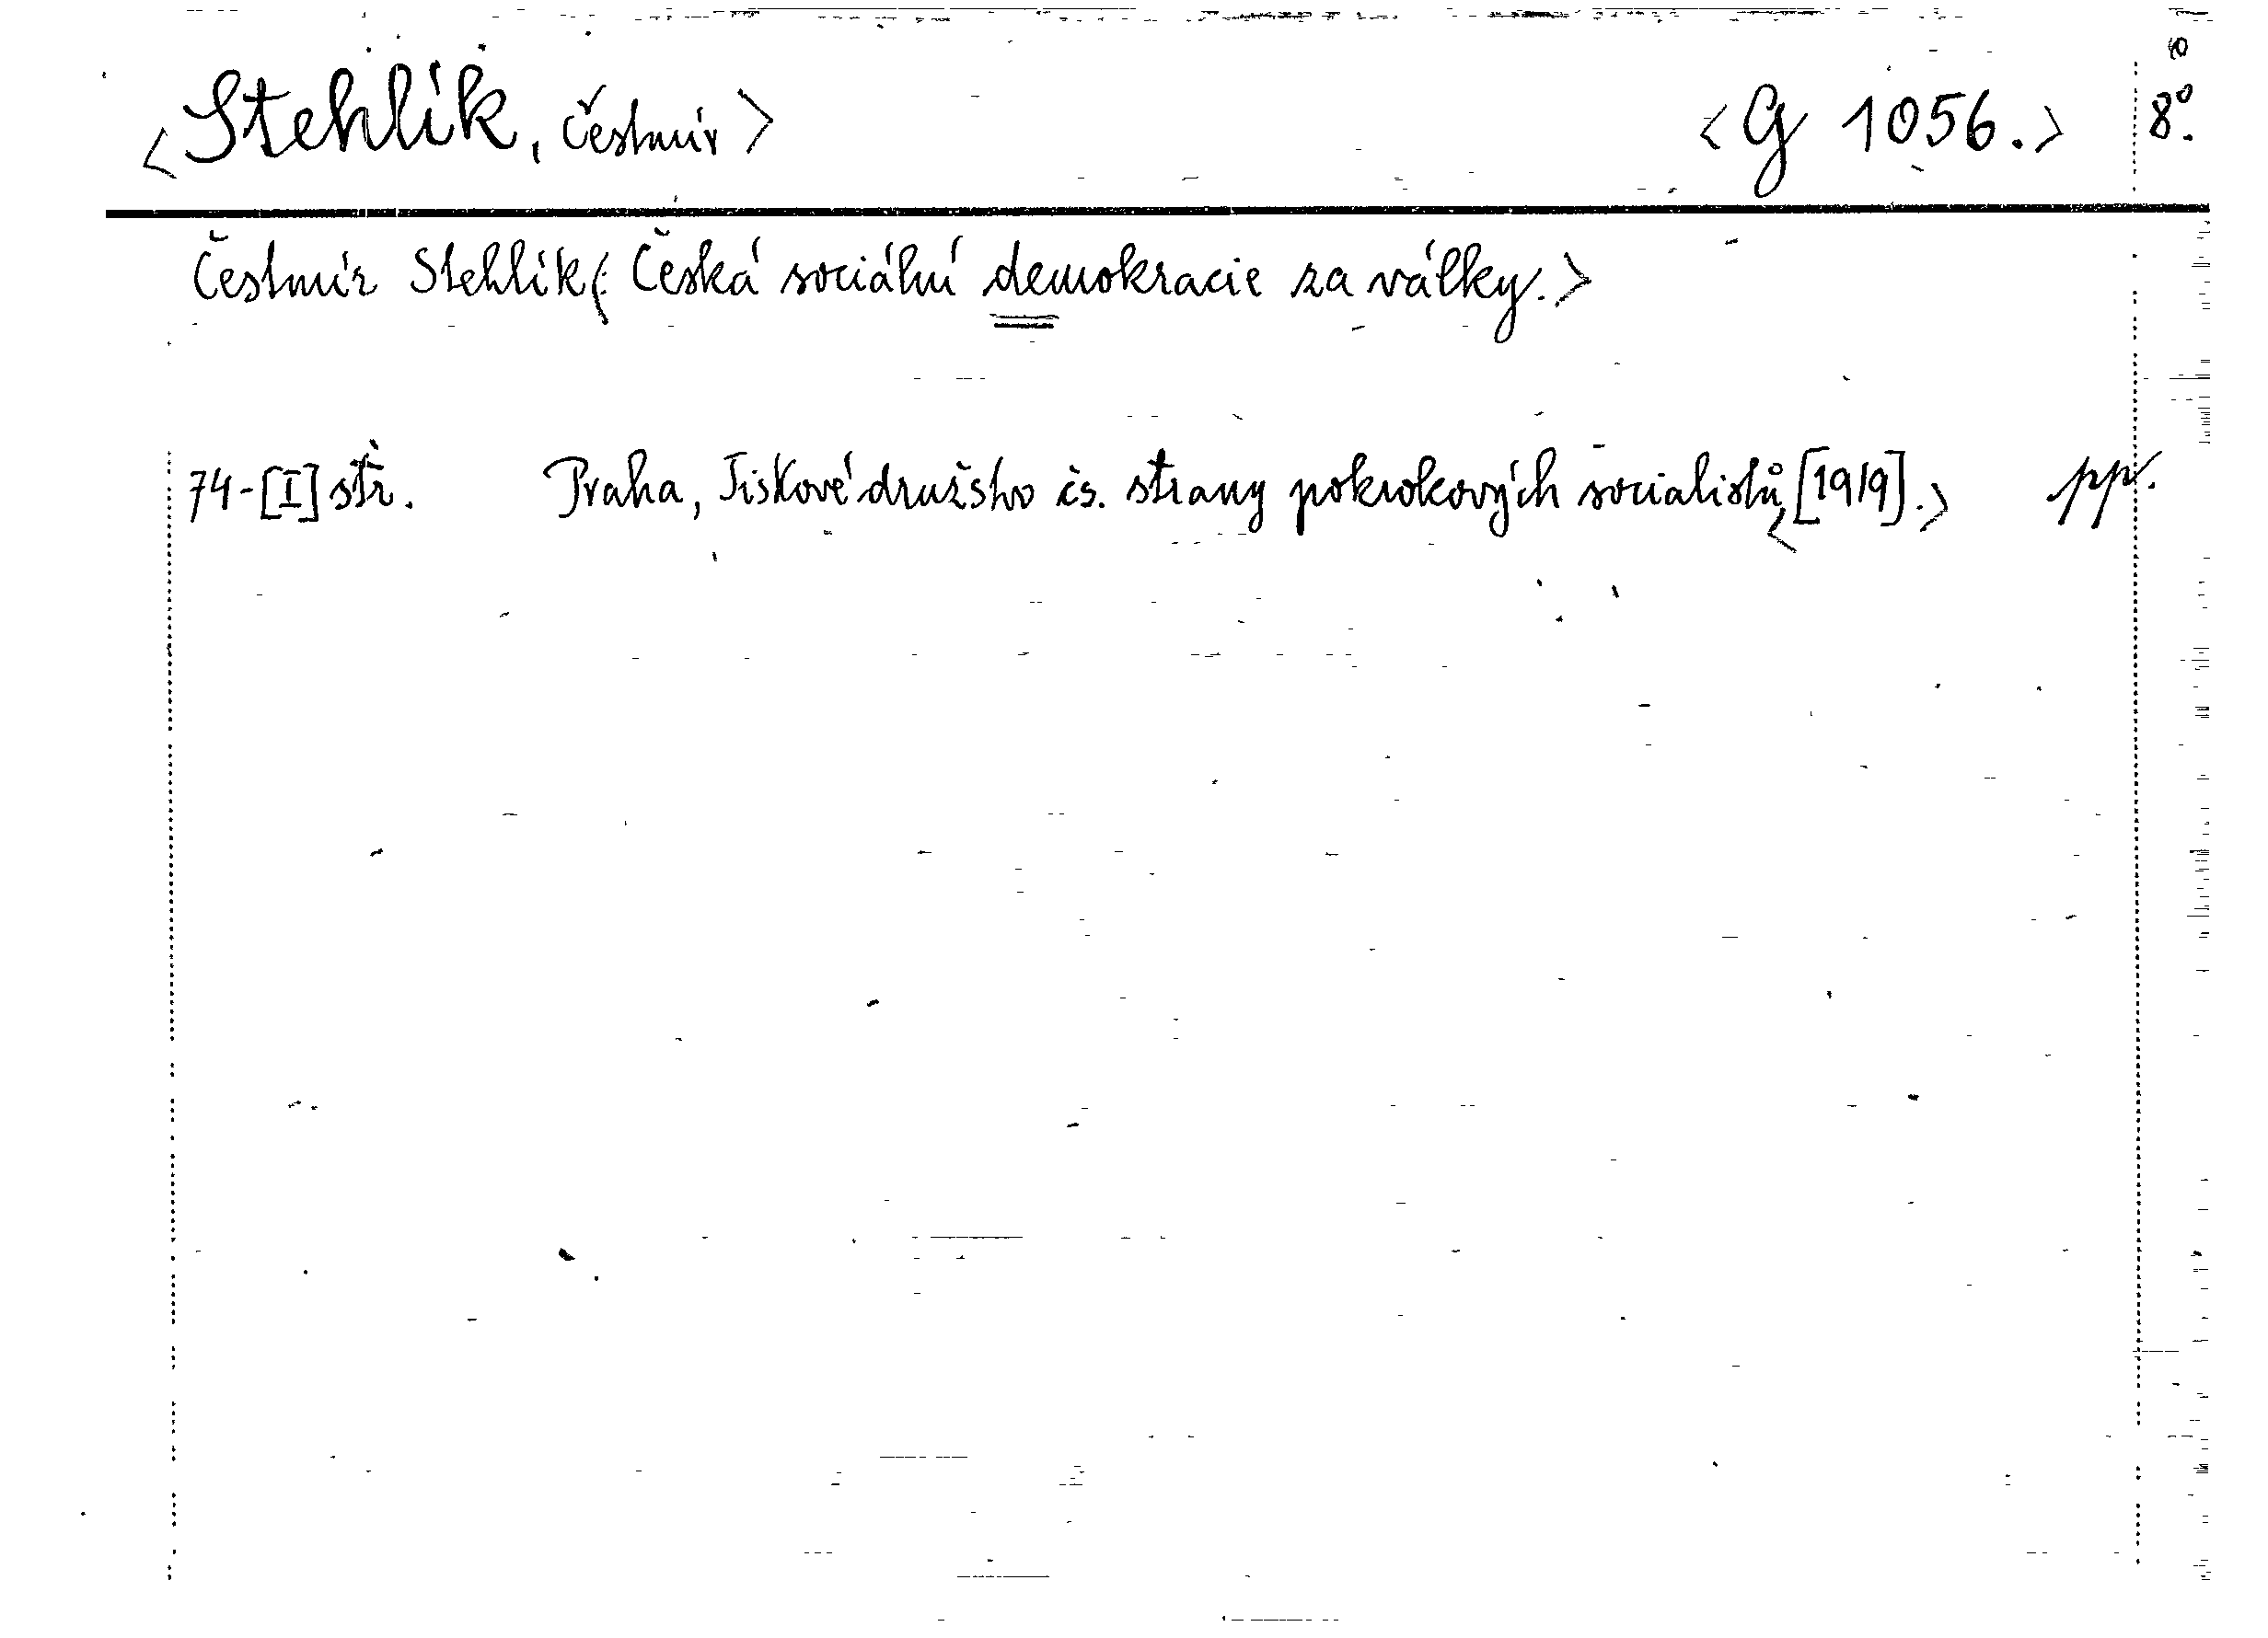 <Stehlík, Čestmír> <G 1056.> 8°.
Čestmír Stehlík<: Česká sociální demokracie za války.>
74-[I] str. Praha, Tiskové družstvo čs. strany pokrokových socialistů,<[1919].> pp.